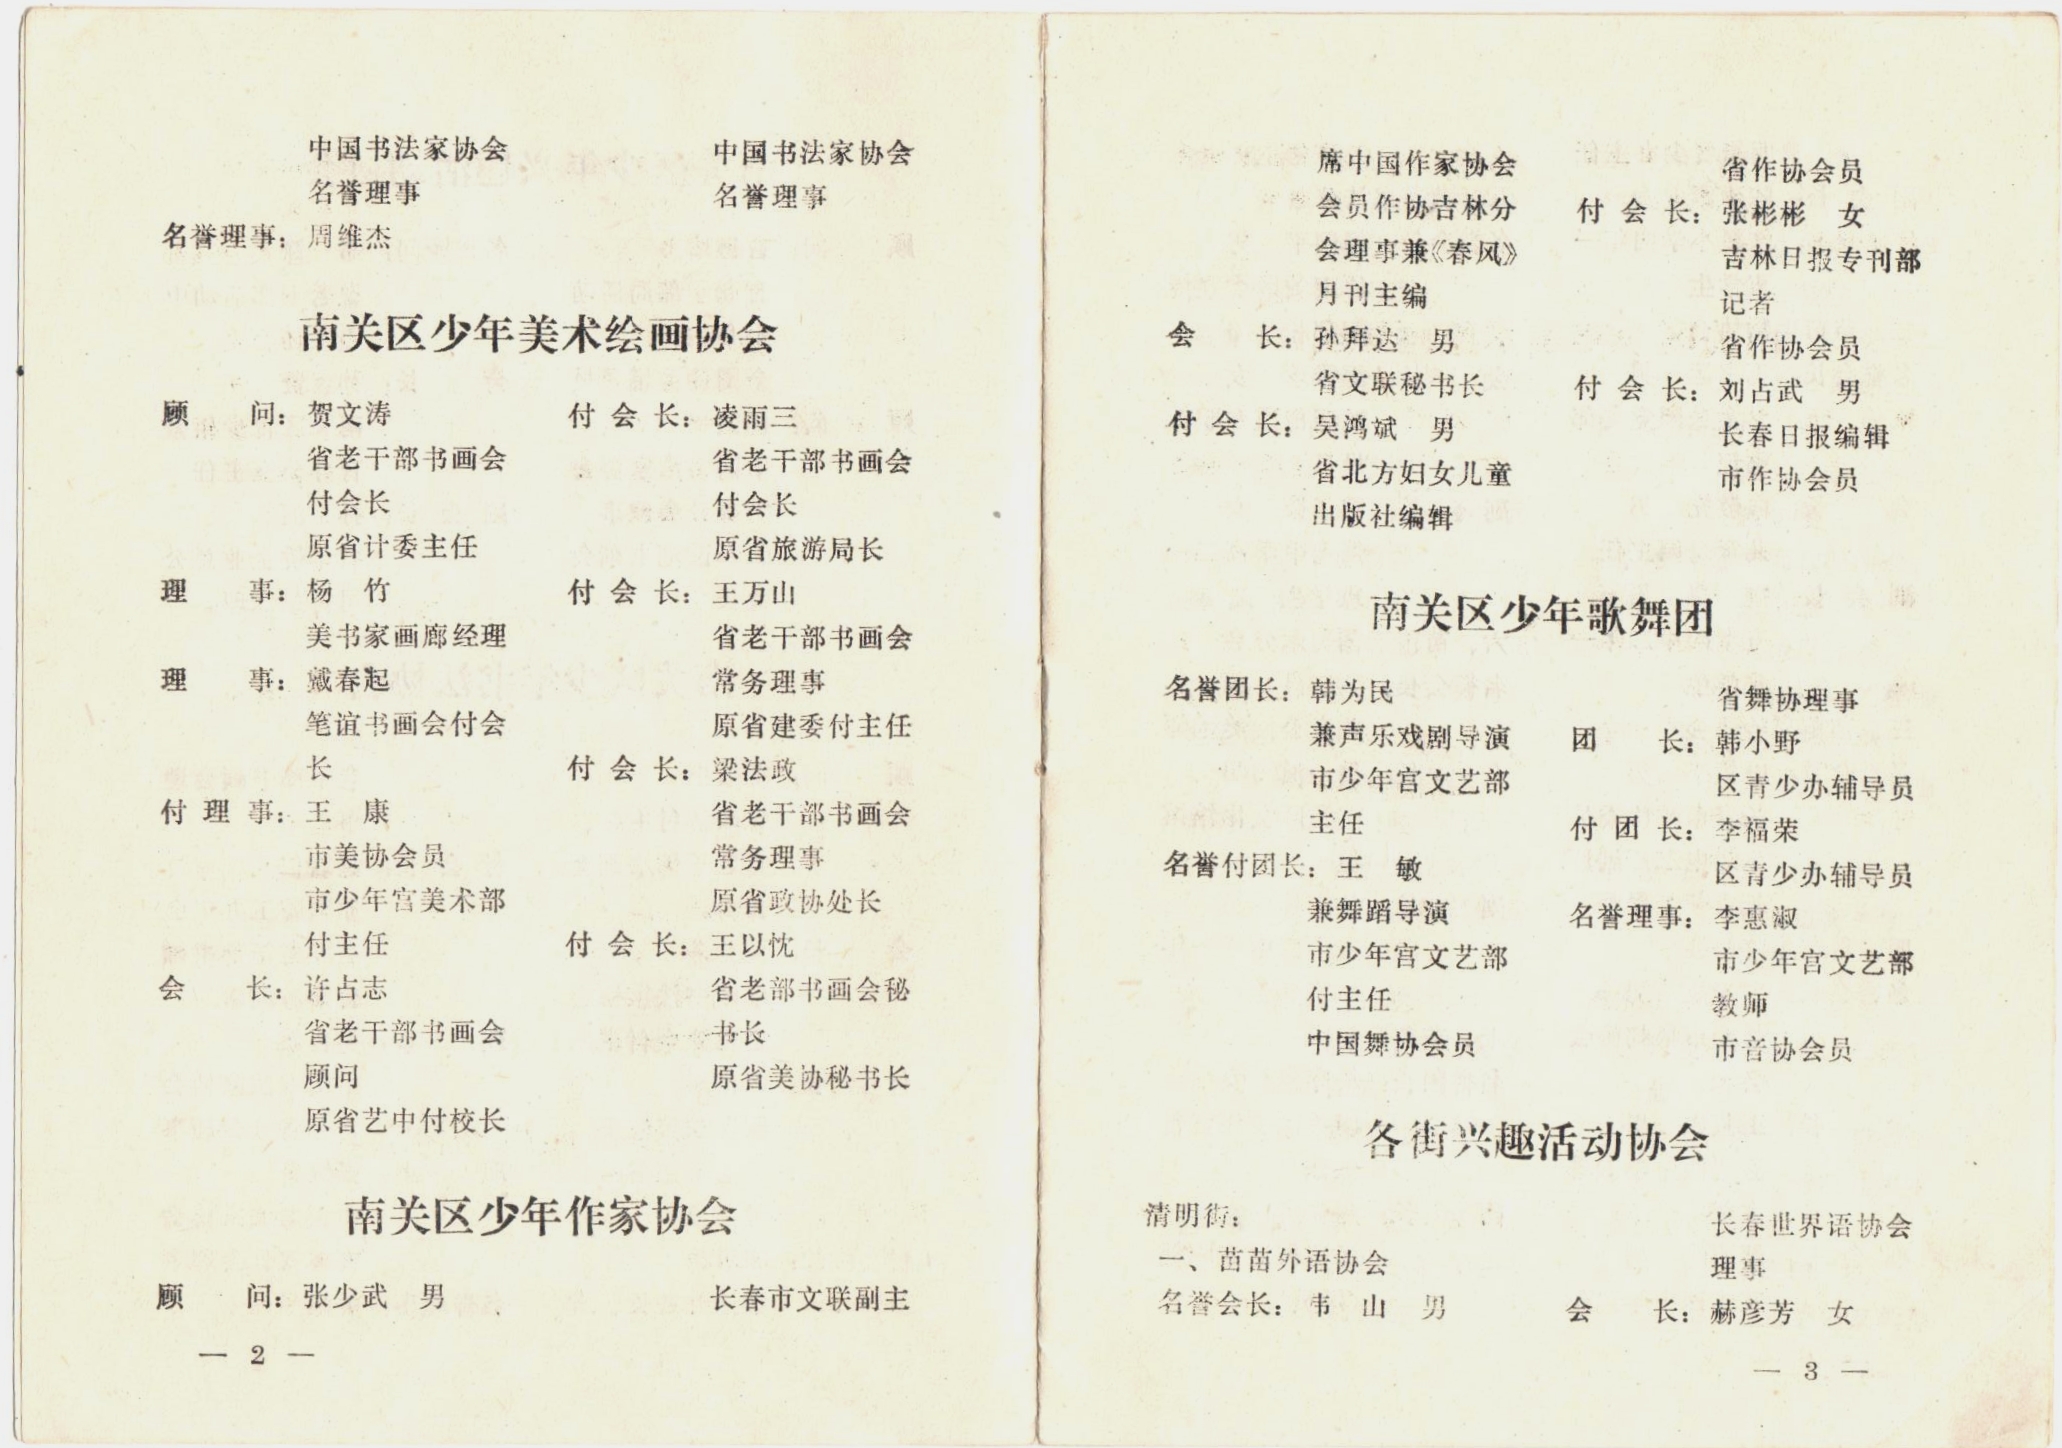 中国书法家协会
名誉理事
名誉理事：周维杰
中国书法家协会
名誉理事
南关区少年美术绘画协会
顾　　问：贺文涛
省老干部书画会
付会长
原省计委主任
理　　事：杨　竹
美书家画廊经理
理　　事：戴春起
笔谊书画会付会
长
付 理 事：王　康
市美协会员
市少年宫美术部
付主任
会　　长：许占志
省老干部书画会
顾问
原省艺中付校长
付 会 长：凌雨三
省老干部书画会
付会长
原省旅游局长
付 会 长：王万山
省老干部书画会
常务理事
原省建委付主任
付 会 长：梁法政
省老干部书画会
常务理事
原省政协处长
付 会 长：王以忱
省老部书画会秘
书长
原省美协秘书长
南关区少年作家协会
顾　　问：张少武　男
长春市文联副主
— 2 —
席中国作家协会
会员作协吉林分
会理事兼《春风》
月刊主编
会　　长：孙拜达　男
省文联秘书长
付 会 长：吴鸿斌　男
省北方妇女儿童
出版社编辑
省作协会员
付 会 长：张彬彬　女
吉林日报专刊部
记者
省作协会员
付 会 长：刘占武　男
长春日报编辑
市作协会员
南关区少年歌舞团
名誉团长：韩为民
兼声乐戏剧导演
市少年宫文艺部
主任
名誉付团长：王　敏
兼舞蹈导演
市少年宫文艺部
付主任
中国舞协会员
省舞协理事
团　　长：韩小野
区青少办辅导员
付 团 长：李福荣
区青少办辅导员
名誉理事：李惠淑
市少年宫文艺部
教师
市音协会员
各街兴趣活动协会
清明街：
一、苗苗外语协会
名誉会长：韦　山　男
长春世界语协会
理事
会　　长：赫彦芳　女
— 3 —